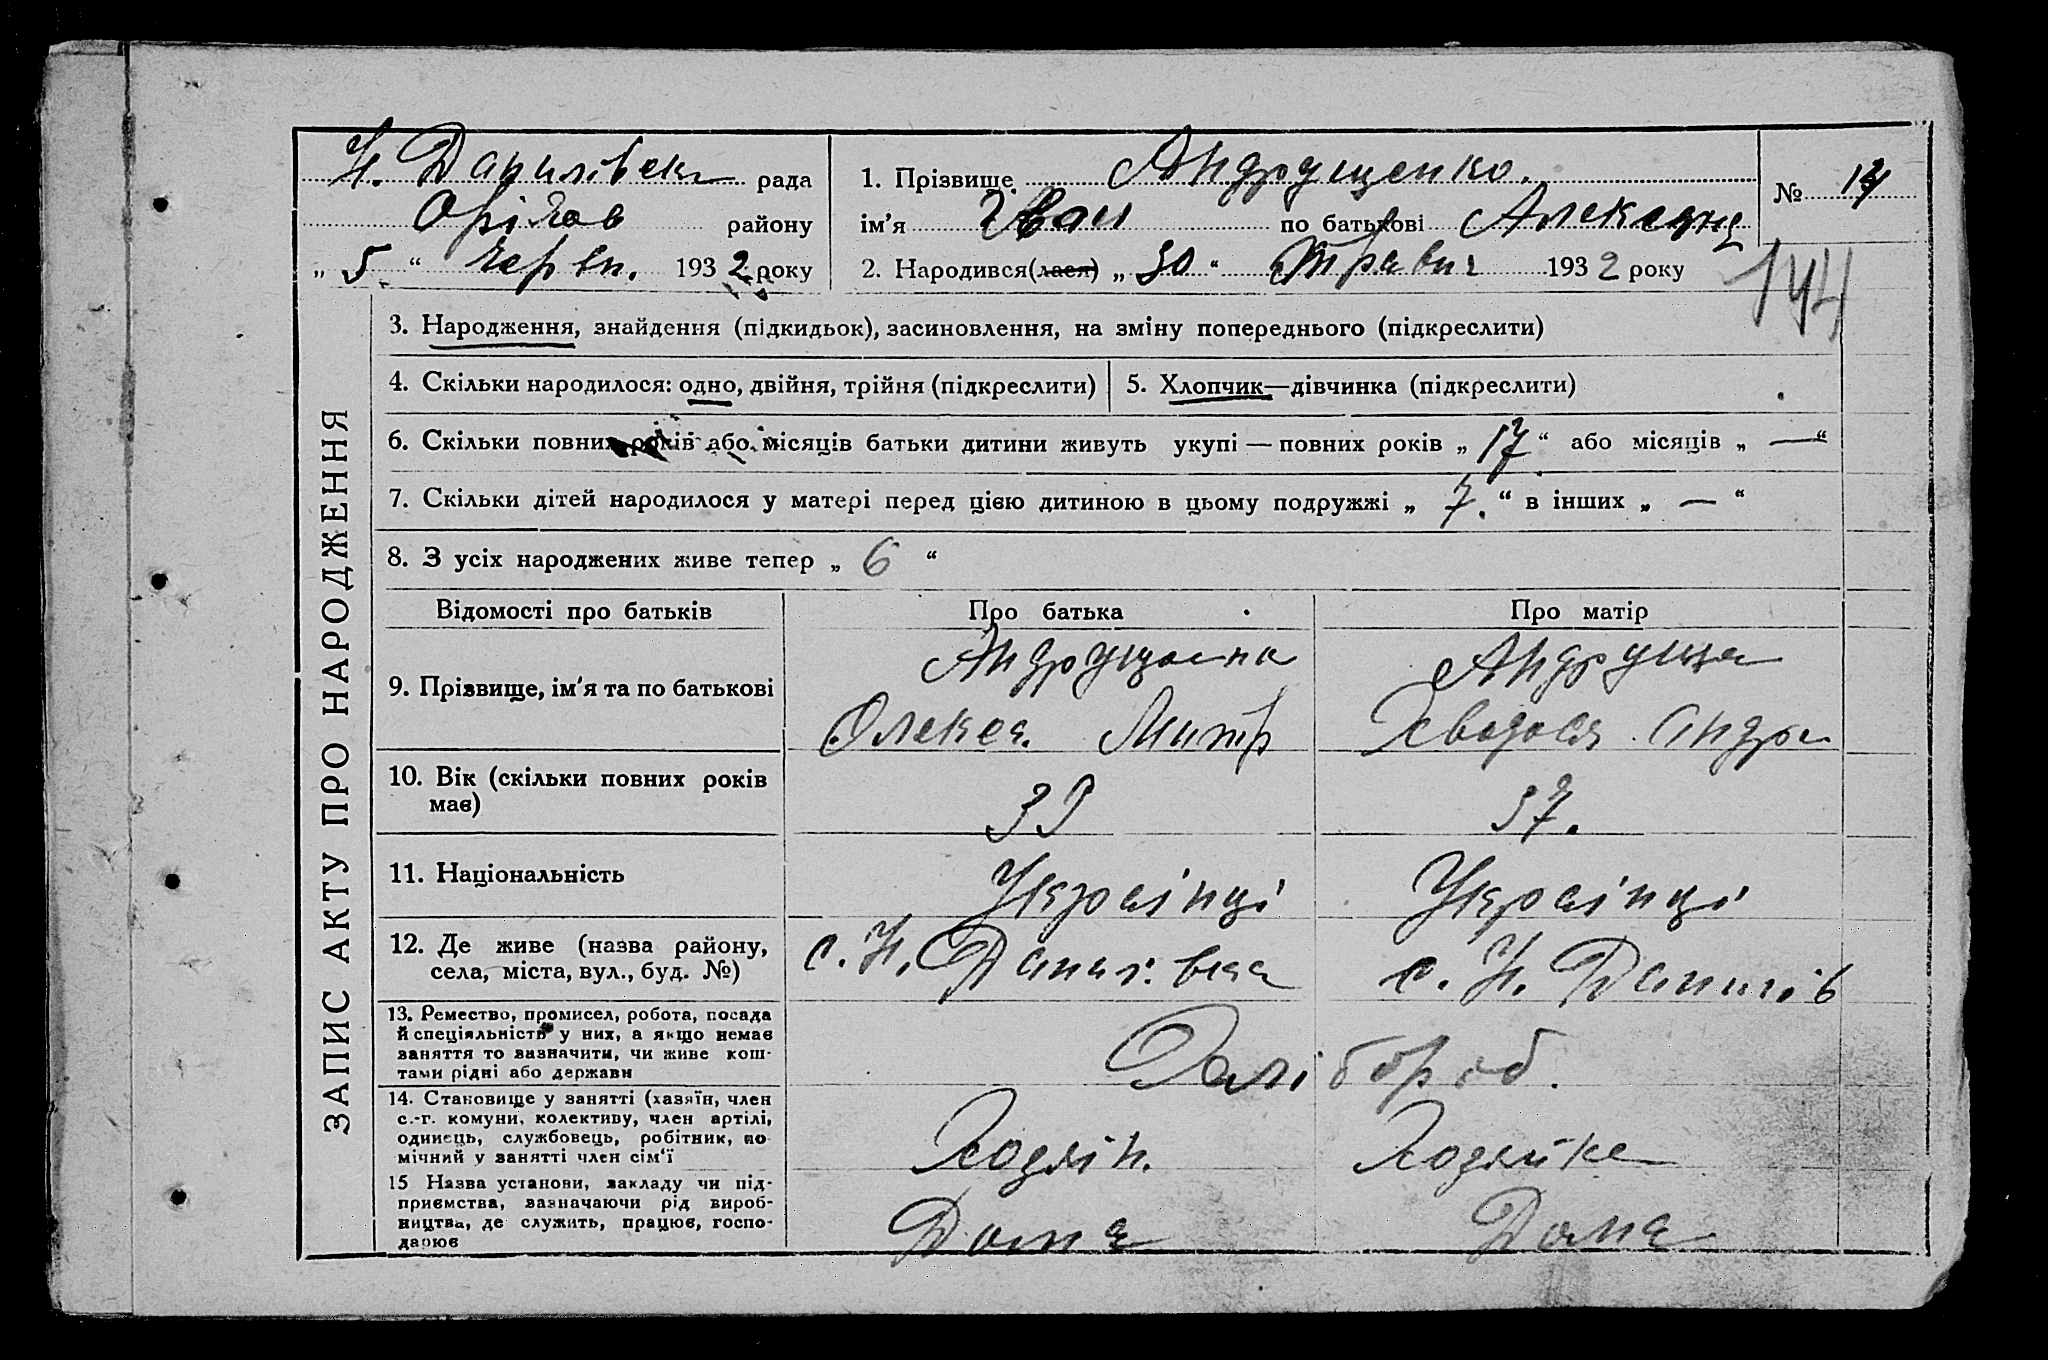 Н. Данилівска рада
Оріхов району
„ 5. “ червн. 1932 року
1. Прізвище Андрущенко.
ім'я Іван по батькові
2. Народився(лася) „ 30 “ Травня 1932 року
№ 14
144
ЗАПИС АКТУ ПРО НАРОДЖЕННЯ
3. Народження, знайдення (підкидьок), засиновлення, на зміну попереднього (підкреслити)
4. Скільки народилося: одно, двійня, трійня (підкреслити)
5. Хлопчик—дівчинка (підкреслити)
6. Скільки повних років або місяців батьки дитини живуть укупі — повних років „ 17 “ або місяців „ — “
7. Скільки дітей народилося у матері перед цією дитиною в цьому подружжі „ 7. “ в інших „ — “
8. З усіх народжених живе тепер „ 6 “
Відомості про батьків Про батька Про матір
9. Прізвище, ім'я та по батькові
Андрущенк Андруще
Олекса. Митр Андрі
10. Вік (скільки повних років
має)
39 37.
11. Національність
Українці Українці
12. Де живе (назва району,
села, міста, вул., буд. №)
с. Н. Данилівка с. Н. Данилів
13. Ремество, промисел, робота, посада
й спеціяльність у них, а якщо немає
заняття то зазначити, чи живе кош-
тами рідні або держави
14. Становище у занятті (хазяїн, член
с.-г. комуни, колективу, член артілі,
одинець, службовець, робітник, по-
мічний у занятті член сім'ї
Ходяін. Ходяйка
15 Назва установи, закладу чи під-
приємства, зазначаючи рід вироб-
ництва, де служить, працює, госпо-
дарює
Дома Дома